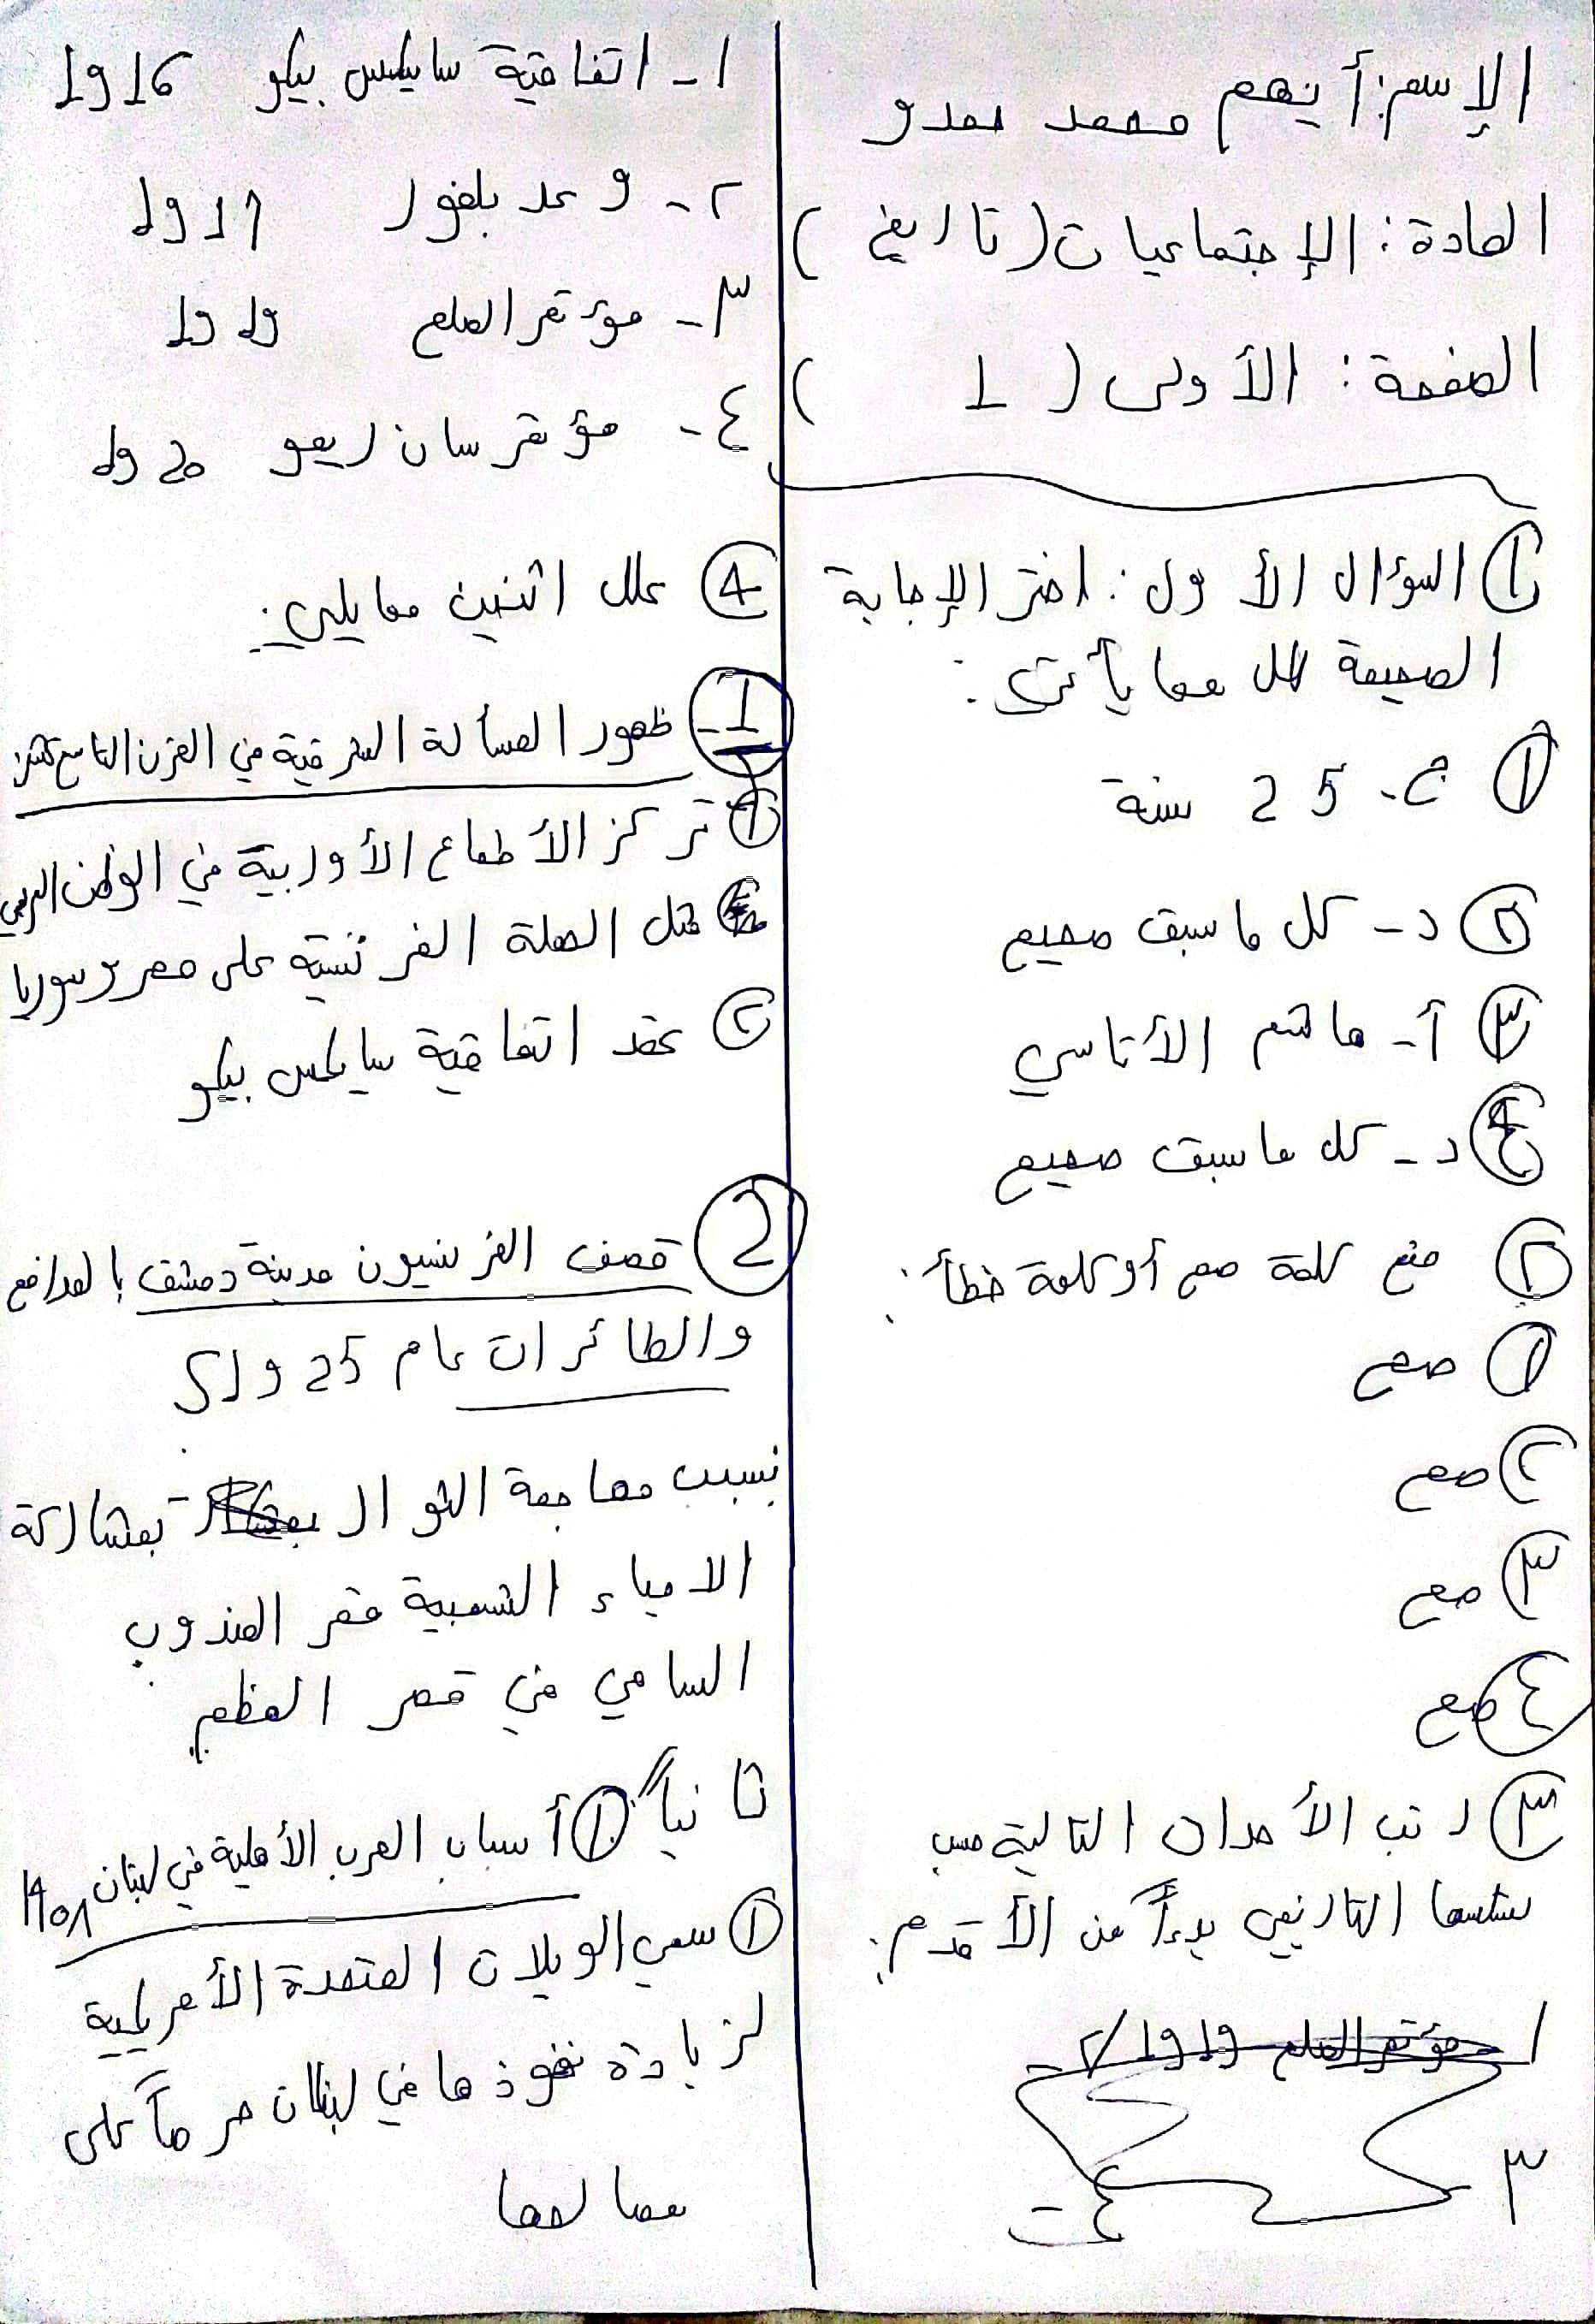 الإسم: أيهم محمد حمدو
المادة: الإجتماعيات (تاريخ)
الصفحة: الأولى (1)
① السؤال الأول: اختر الإجابة
الصحيحة لكل مما يأتي:
① ج- 25 سنة
② د- كل ما سبق صحيح
③ أ- هاشم الأتاسي
④ د- كل ما سبق صحيح
② ضع كلمة صح أو كلمة خطأ:
① صح
② صح
③ صح
④ صح
③ رتب الأحداث التالية حسب
تسلسلها التاريخي بدءاً من الأقدم:
١- اتفاقية سايكس بيكو 1916
٢- وعد بلفور 1917
٣- مؤتمر الصلح 1919
٤- مؤتمر سان ريمو 1920
④ علل اثنين مما يلي:
1- ظهور المسألة الشرقية في القرن التاسع عشر:
① تركز الأطماع الأوربية في الوطن العربي
فشل الحملة الفرنسية على مصر وسوريا
② عقد اتفاقية سايكس بيكو
② قصف الفرنسيون مدينة دمشق بالمدافع
والطائرات عام 1925
بسبب مهاجمة الثوار بمشاركة
الاحياء الشعبية مقر المندوب
السامي في قصر العظم
ثانياً: ① أسباب الحرب الأهلية في لبنان ١٩٥٨
① سعي الويلات المتحدة الأمريكية
لزيادة نفوذها في لبنان حرصاً على
مصالحها